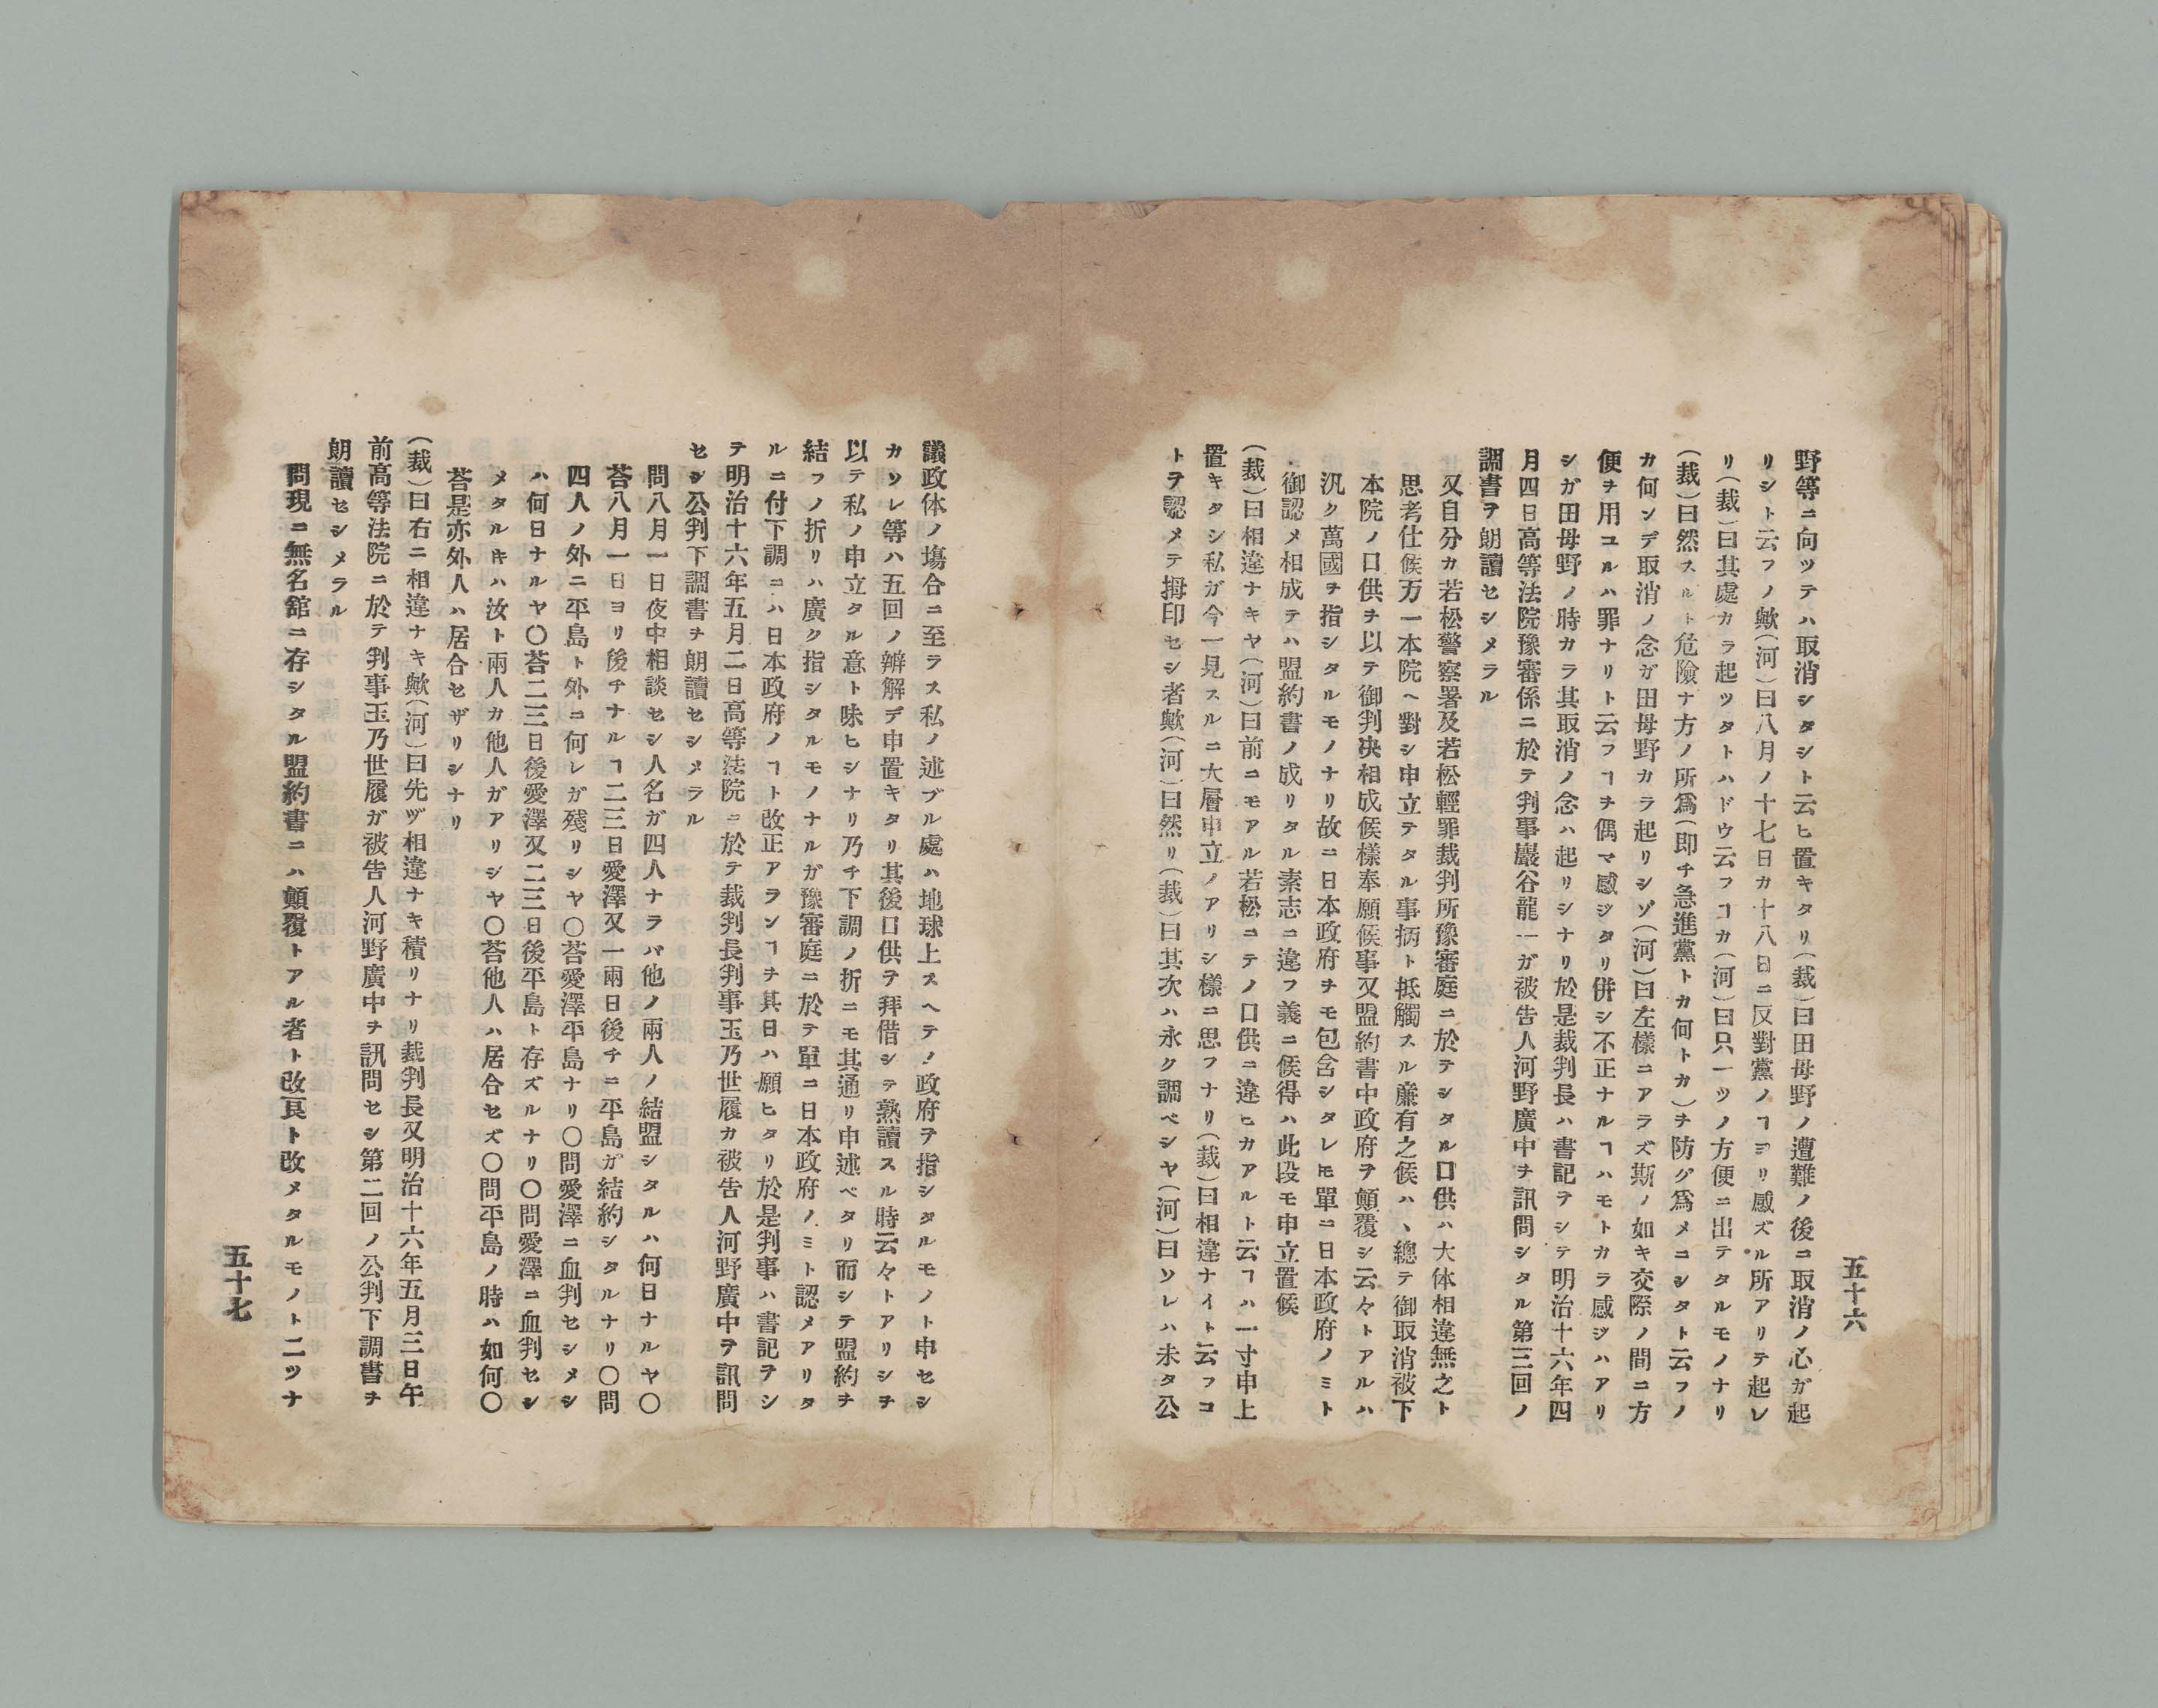 五十六
野等ニ向ツテハ取消シタシト云ヒ置キタリ(裁)曰田母野ノ遭難ノ後ニ取消ノ心ガ起
リシト云フノ歟(河)曰八月ノ十七日カ十八日ニ反對黨ノヿヨリ感ズル所アリテ起レ
リ(裁)曰其處カラ起ツタトハドウ云フヿカ(河)曰只一ツノ方便ニ出テタルモノナリ
(裁)曰然スルト危險ナ方ノ所爲(即チ急進黨トカ何トカ)ヲ防グ爲メニシタト云フノ
カ何ンデ取消ノ念ガ田母野カラ起リシゾ(河)曰左樣ニアラズ斯ノ如キ交際ノ間ニ方
便ヲ用ユルハ罪ナリト云フヿヲ偶マ感ジタリ併シ不正ナルヿハモトカラ感ジハアリ
シガ田母野ノ時カラ其取消ノ念ハ起リシナリ於是裁判長ハ書記ヲシテ明治十六年四
月四日高等法院豫審係ニ於テ判事巖谷龍一ガ被告人河野廣中ヲ訊問シタル第三回ノ
調書ヲ朗讀セシメラル
又自分カ若松警察署及若松輕罪裁判所豫審庭ニ於テシタル口供ハ大体相違無之ト
思考仕候万一本院ヘ對シ申立テタル事柄ト抵觸スル廉有之候ハヽ總テ御取消被下
本院ノ口供ヲ以テ御判决相成候樣奉願候事又盟約書中政府ヲ顛覆シ云々トアルハ
汎ク萬國ヲ指シタルモノナリ故ニ日本政府ヲモ包含シタレㇳモ單ニ日本政府ノミト
御認メ相成テハ盟約書ノ成リタル素志ニ違フ義ニ候得ハ此段モ申立置候
(裁)曰相違ナキヤ(河)曰前ニモアル若松ニテノ口供ニ違ヒカアルト云フヿハ一寸申上
置キタシ私ガ今一見スルニ大層申立ノアリシ樣ニ思フナリ(裁)曰相違ナイト云フコ
トヲ認メテ拇印セシ者歟(河)曰然リ(裁)曰其次ハ永ク調ベシヤ(河)曰ソレハ未タ公
議政体ノ塲合ニ至ラス私ノ述ブル處ハ地球上スヘテノ政府ヲ指シタルモノト申セシ
カソレ等ハ五回ノ辨解デ申置キタリ其後口供ヲ拜借シテ熟讀スル時云々トアリシヲ
以テ私ノ申立タル意ト味ヒシナリ乃チ下調ノ折ニモ其通リ申述ベタリ而シテ盟約ヲ
結フノ折リハ廣ク指シタルモノナルガ豫審庭ニ於テ單ニ日本政府ノミト認メアリタ
ルニ付下調ニハ日本政府ノヿト改正アランヿヲ其日ハ願ヒタリ於是判事ハ書記ヲシ
テ明治十六年五月二日高等法院ニ於テ裁判長判事玉乃世履カ被告人河野廣中ヲ訊問
セシ公判下調書ヲ朗讀セシメラル
問八月一日夜中相談セシ人名ガ四人ナラバ他ノ兩人ノ結盟シタルハ何日ナルヤ〇
荅八月一日ヨリ後チナルヿ二三日愛澤又一兩日後チニ平島ガ結約シタルナリ〇問
四人ノ外ニ平島ト外ニ何レガ殘リシヤ〇荅愛澤平島ナリ〇問愛澤ニ血判セシメシ
ハ何日ナルヤ〇荅二三日後愛澤又二三日後平島ト存ズルナリ〇問愛澤ニ血判セシ
メタルキハ汝ト兩人カ他人ガアリシヤ〇荅他人ハ居合セズ〇問平島ノ時ハ如何〇
荅是亦外人ハ居合セザリシナリ
(裁)曰右ニ相違ナキ歟(河)曰先ヅ相違ナキ積リナリ裁判長又明治十六年五月三日午
前高等法院ニ於テ判事玉乃世履ガ被告人河野廣中ヲ訊問セシ第二回ノ公判下調書ヲ
朗讀セシメラル
問現ニ無名舘ニ存シタル盟約書ニハ顛覆トアル者ト改良ト改メタルモノト二ツナ
五十七